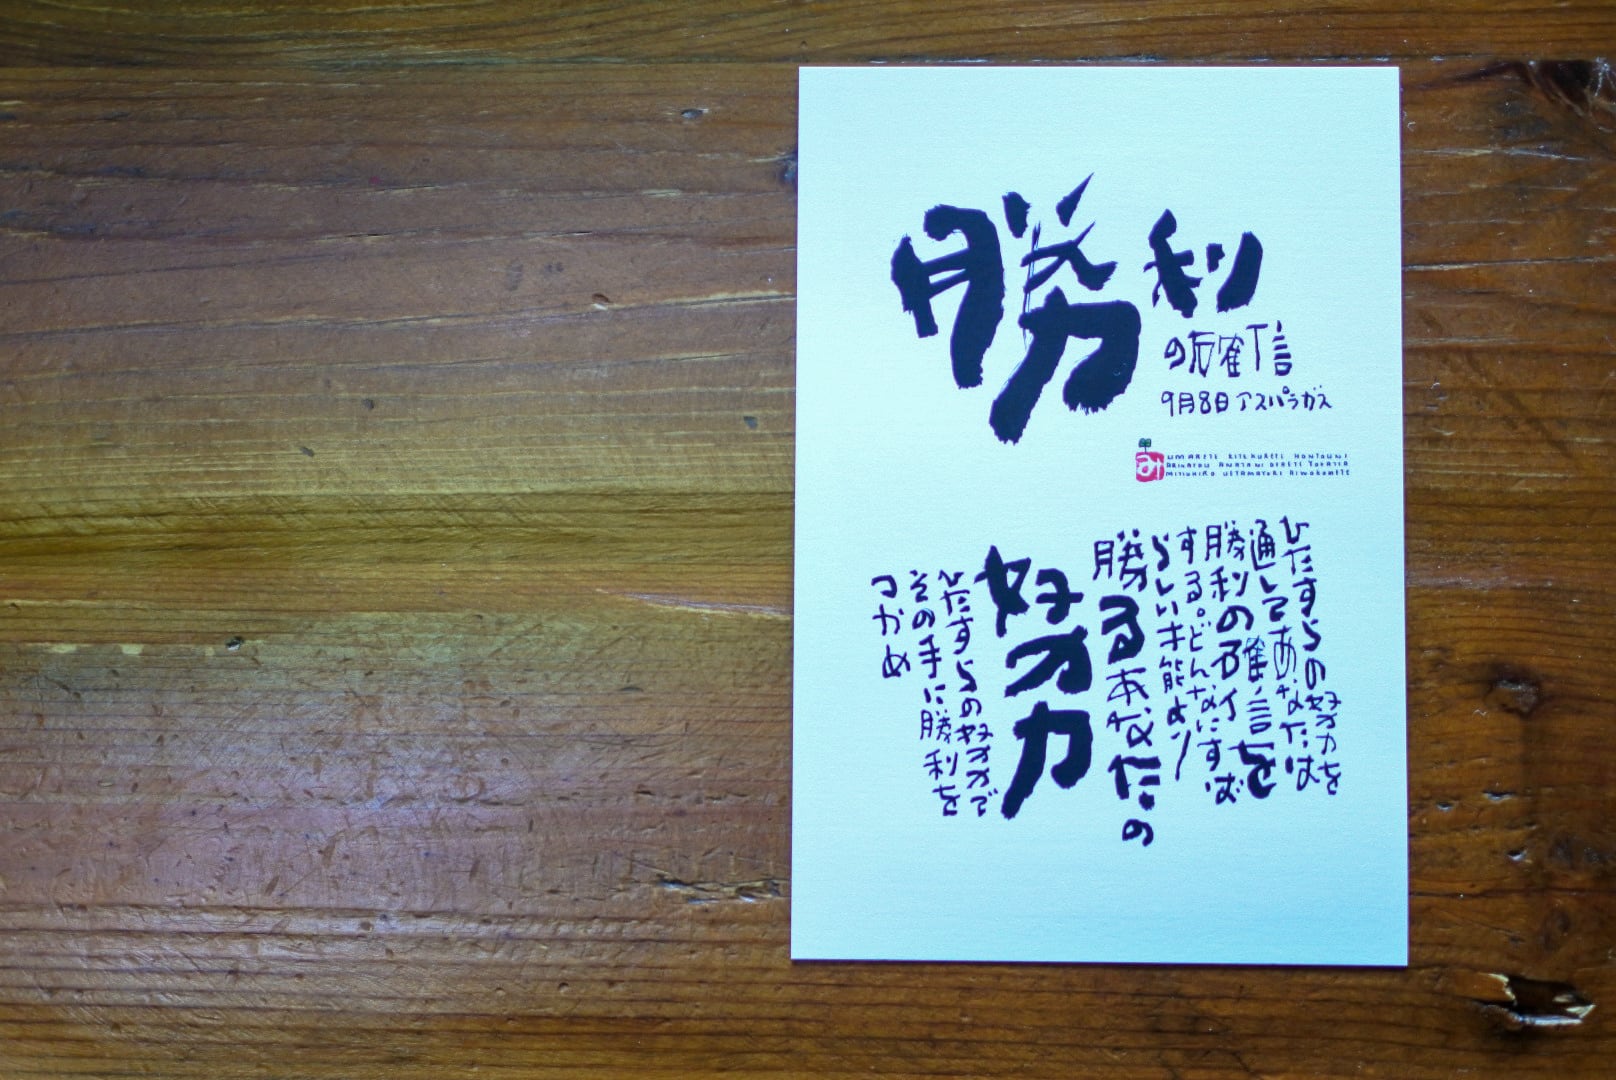 勝利
の確信
9月8日 アスパラガス
み
UMARETE KITEKURETE HONTOUNI
ARIGATOU ANATANI DEAETE YOKATTA
MITSUHIRO
ひたすらの努力を
通してあなたは
勝利の確信を
する。どんなにすば
らしい才能より
勝るあなたの
努力
ひたすらの努力で
その手に勝利を
つかめ